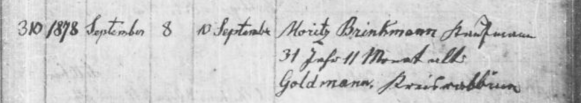 310 1878 September 8 10 September Moritz Brinkmann Kaufmann
31 Jahr 11 Monat alt
Goldmann, Kreisrabbiner